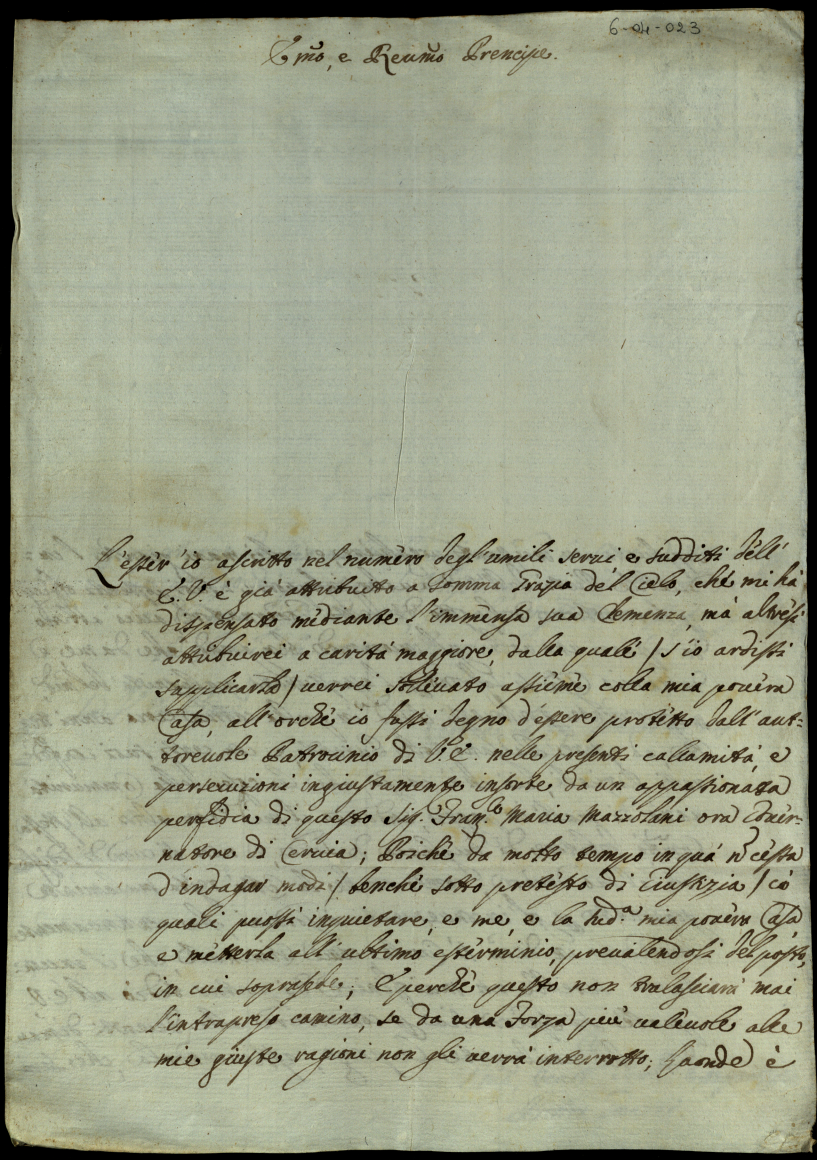 6-04-023
Emo, e Reumo Prencipe.
L'esser io ascritto nel numero degl'umili serui, e sudditi dell'
E. V. è giá attribuito a somma Grazia del Cielo, che mi há
dispensato mediante l'immensa sua Clemenza, má altresi
attribuirei a caritá maggiore, dalla quale / s'io ardissi
supplicarla / uerrei solleuato assieme colla mia pouera
Casa, all'orche io fussi degno d'essere protetto dall'aut=
toreuole Patrocinio di V. E. nelle presenti calamitá, e
persecuzioni ingiustamente insorte da un appassionata
perfidia di questo Sig.r Fran.co Maria Mazzolani ora Gouer=
natore di Ceruia; Poiche da molto tempo in quá nõ cessa
d'indagar modi / benche sotto pretesto di Giustizia / cō
quali possa inquietare, e me, e la sud.a mia pouera Casa
e metterla all'ultimo esterminio, preualendosi del posto,
in cui soprasede; E perche questo non tralasciará mai
l'intrapreso camino, se da una Forza piú ualeuole alle
mie giuste ragioni non gli uerrá interrotto; Laonde è